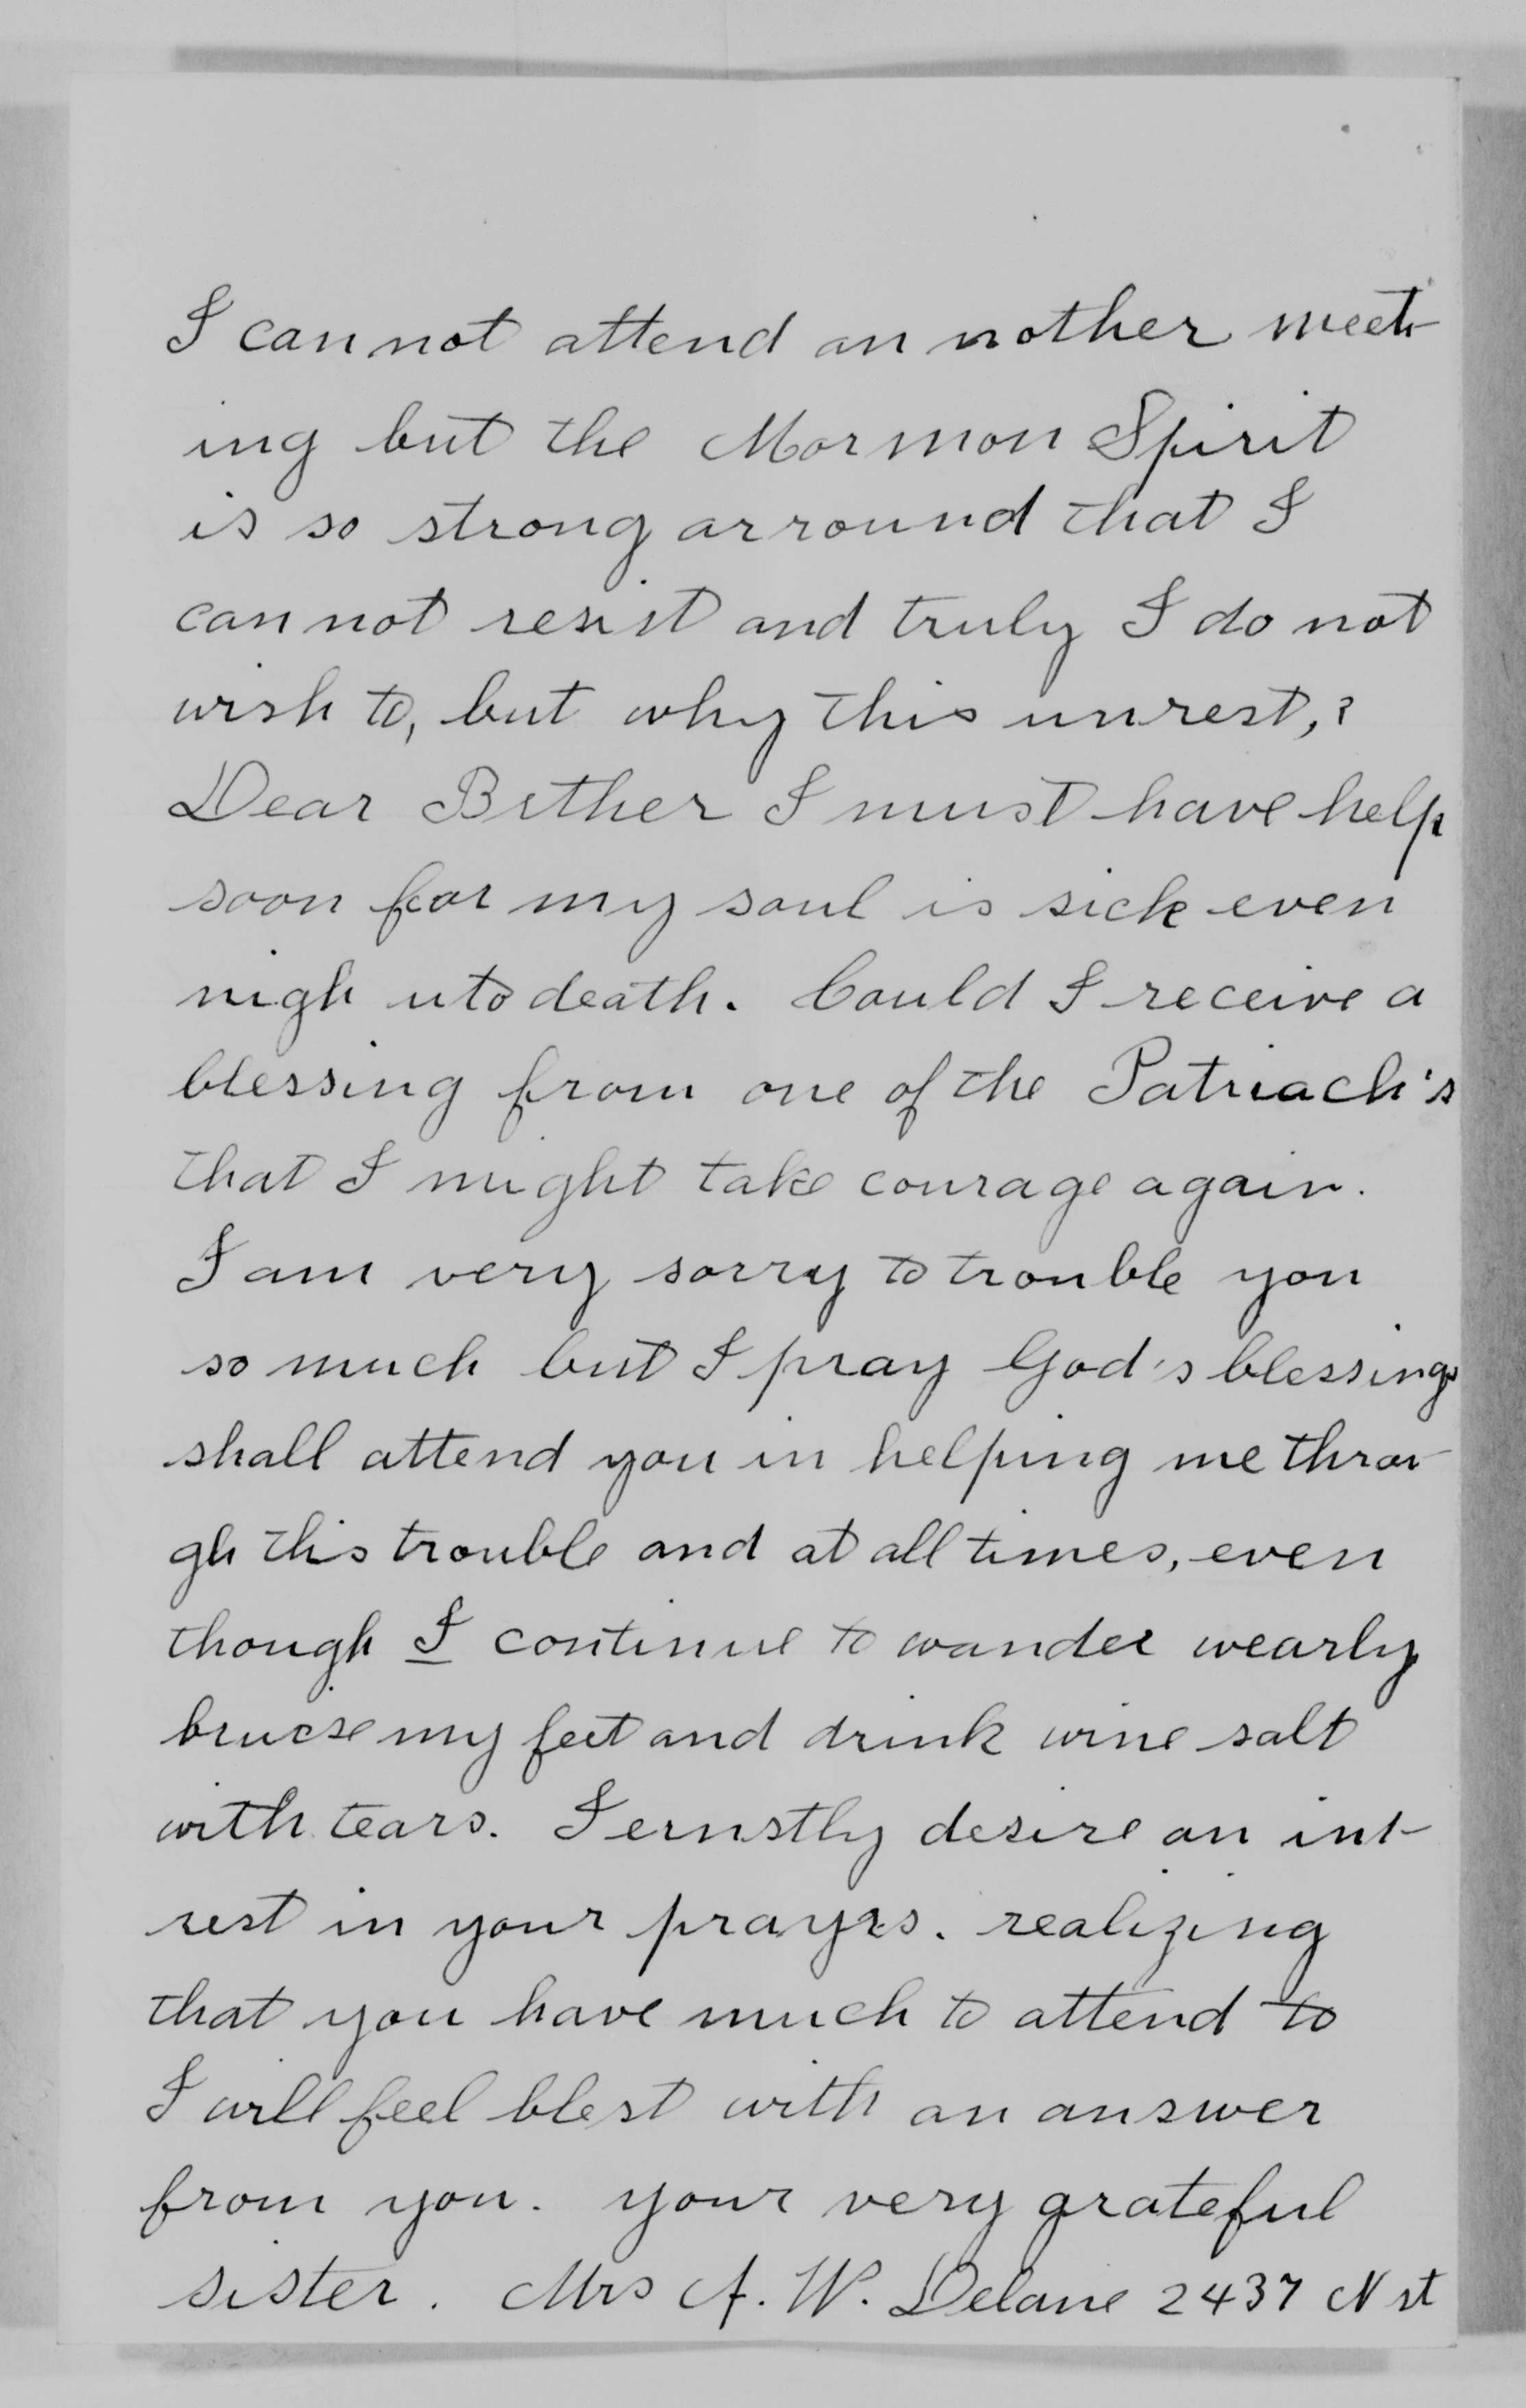 I cannot attend an nother meet-
ing but the Mormon Spirit
is so strong arround that I
cannot resist and truly I do not
wish to, but why this unrest,?
Dear Bither I must have help
soon for my soul is sick even
nigh uto death. Could I receive a
blessing from one of the Patriach's
that I might take courage again.
I am very sorry to trouble you
so much but I pray God's blessings
shall attend you in helping me throu-
gh this trouble and at all times, even
though I continue to wander wearly
bruise my feet and drink wine salt
with tears. I ernstly desire an int-
rest in your prayrs. realizing
that you have much to attend to
I will feel blest with an answer
from you. your very grateful
sister. Mrs A. W. Delane 2437 N st